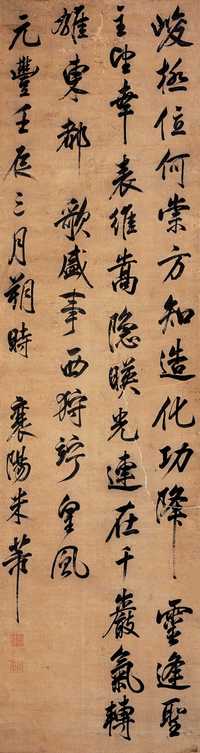 峻極位何崇方知造化功降靈逢聖
主望幸表維嵩隱暎光連在千巖氣轉
雄東都歌盛事西狩竚皇風
元豐壬辰三月朔時襄陽米芾